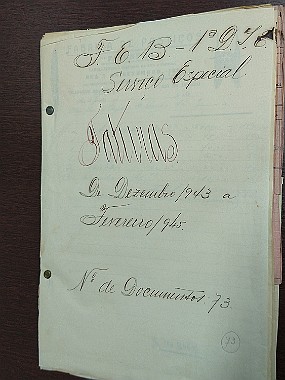 F. E. B - 1ª D. I. E
Serviço Especial
Faturas
De Dezembro/943 a
Fevereiro/945.
Nº de Documentos 73
73